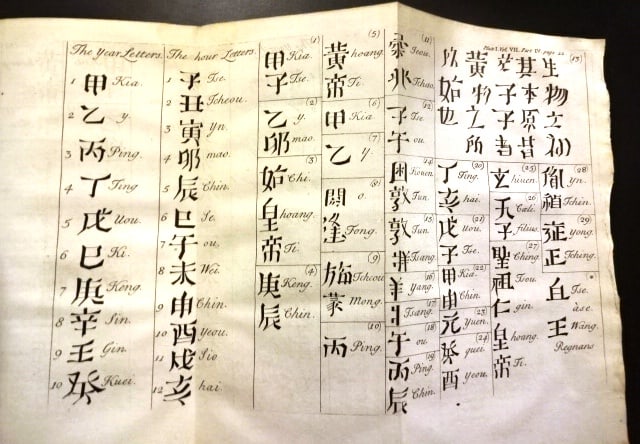 Plate I. Vol. VII. Part IV. page 22
The Year Letters.
1 甲 Kia.
2 乙 y.
3 丙 Ping.
4 丁 Ting
5 戊 Uou.
6 巳 Ki.
7 庚 Keng.
8 辛 Sin.
9 壬 Gin.
10 癸 Kuei.
The hour Letters.
1 子 Tse.
2 丑 Tcheou.
3 寅 yn.
4 卯 mao.
5 辰 Chin.
6 巳 Se.
7 午 ou.
8 未 Wei.
9 申 Chin.
10 酉 yeou.
11 戌 Sio
12 亥 hai.
(1)
甲 Kia.
子 Tse.
(2)
乙 y.
卯 mao.
(3)
始 Chi.
皇 hoang.
帝 Ti.
(4)
庚 Keng.
辰 Chin.
(5)
黃 hoang.
帝 Ti.
(6)
甲 Kia.
(7)
乙 y.
(8)
閼 o.
逢 Fong.
(9)
旃 Tcheou
蒙 Mong.
(10)
丙 Ping.
(11)
兆 Tchao.
(12)
子 Tse.
午 ou.
(14)
困 Kouen.
敦 Tun.
(15)
敦 Tun.
牂 Tsang.
(16)
羊 Yang.
(17)
爿 Tsang.
(18)
午 ou.
(19)
丙 Ping.
辰 Chin.
(13)
生物之初
其本原昔
芒子子者
黃物之所
以始也
(20)
丁 Ting.
亥 hai.
(21)
戊 You.
子 Tse.
(22)
甲 Kia.
申
(23)
元 Yuen.
(24)
癸 guei.
酉 yeou.
(25)
玄 hiuen.
(26)
天 Cæli.
子 filius.
(27)
聖 Ching.
祖 Tsou.
仁 gin.
皇 hoang.
帝 Ti.
(28)
胤 yn.
禎 Tchin.
(29)
雍 yong.
正 Tching.
自 Tse.
àse.
王 Wang.
Regnans